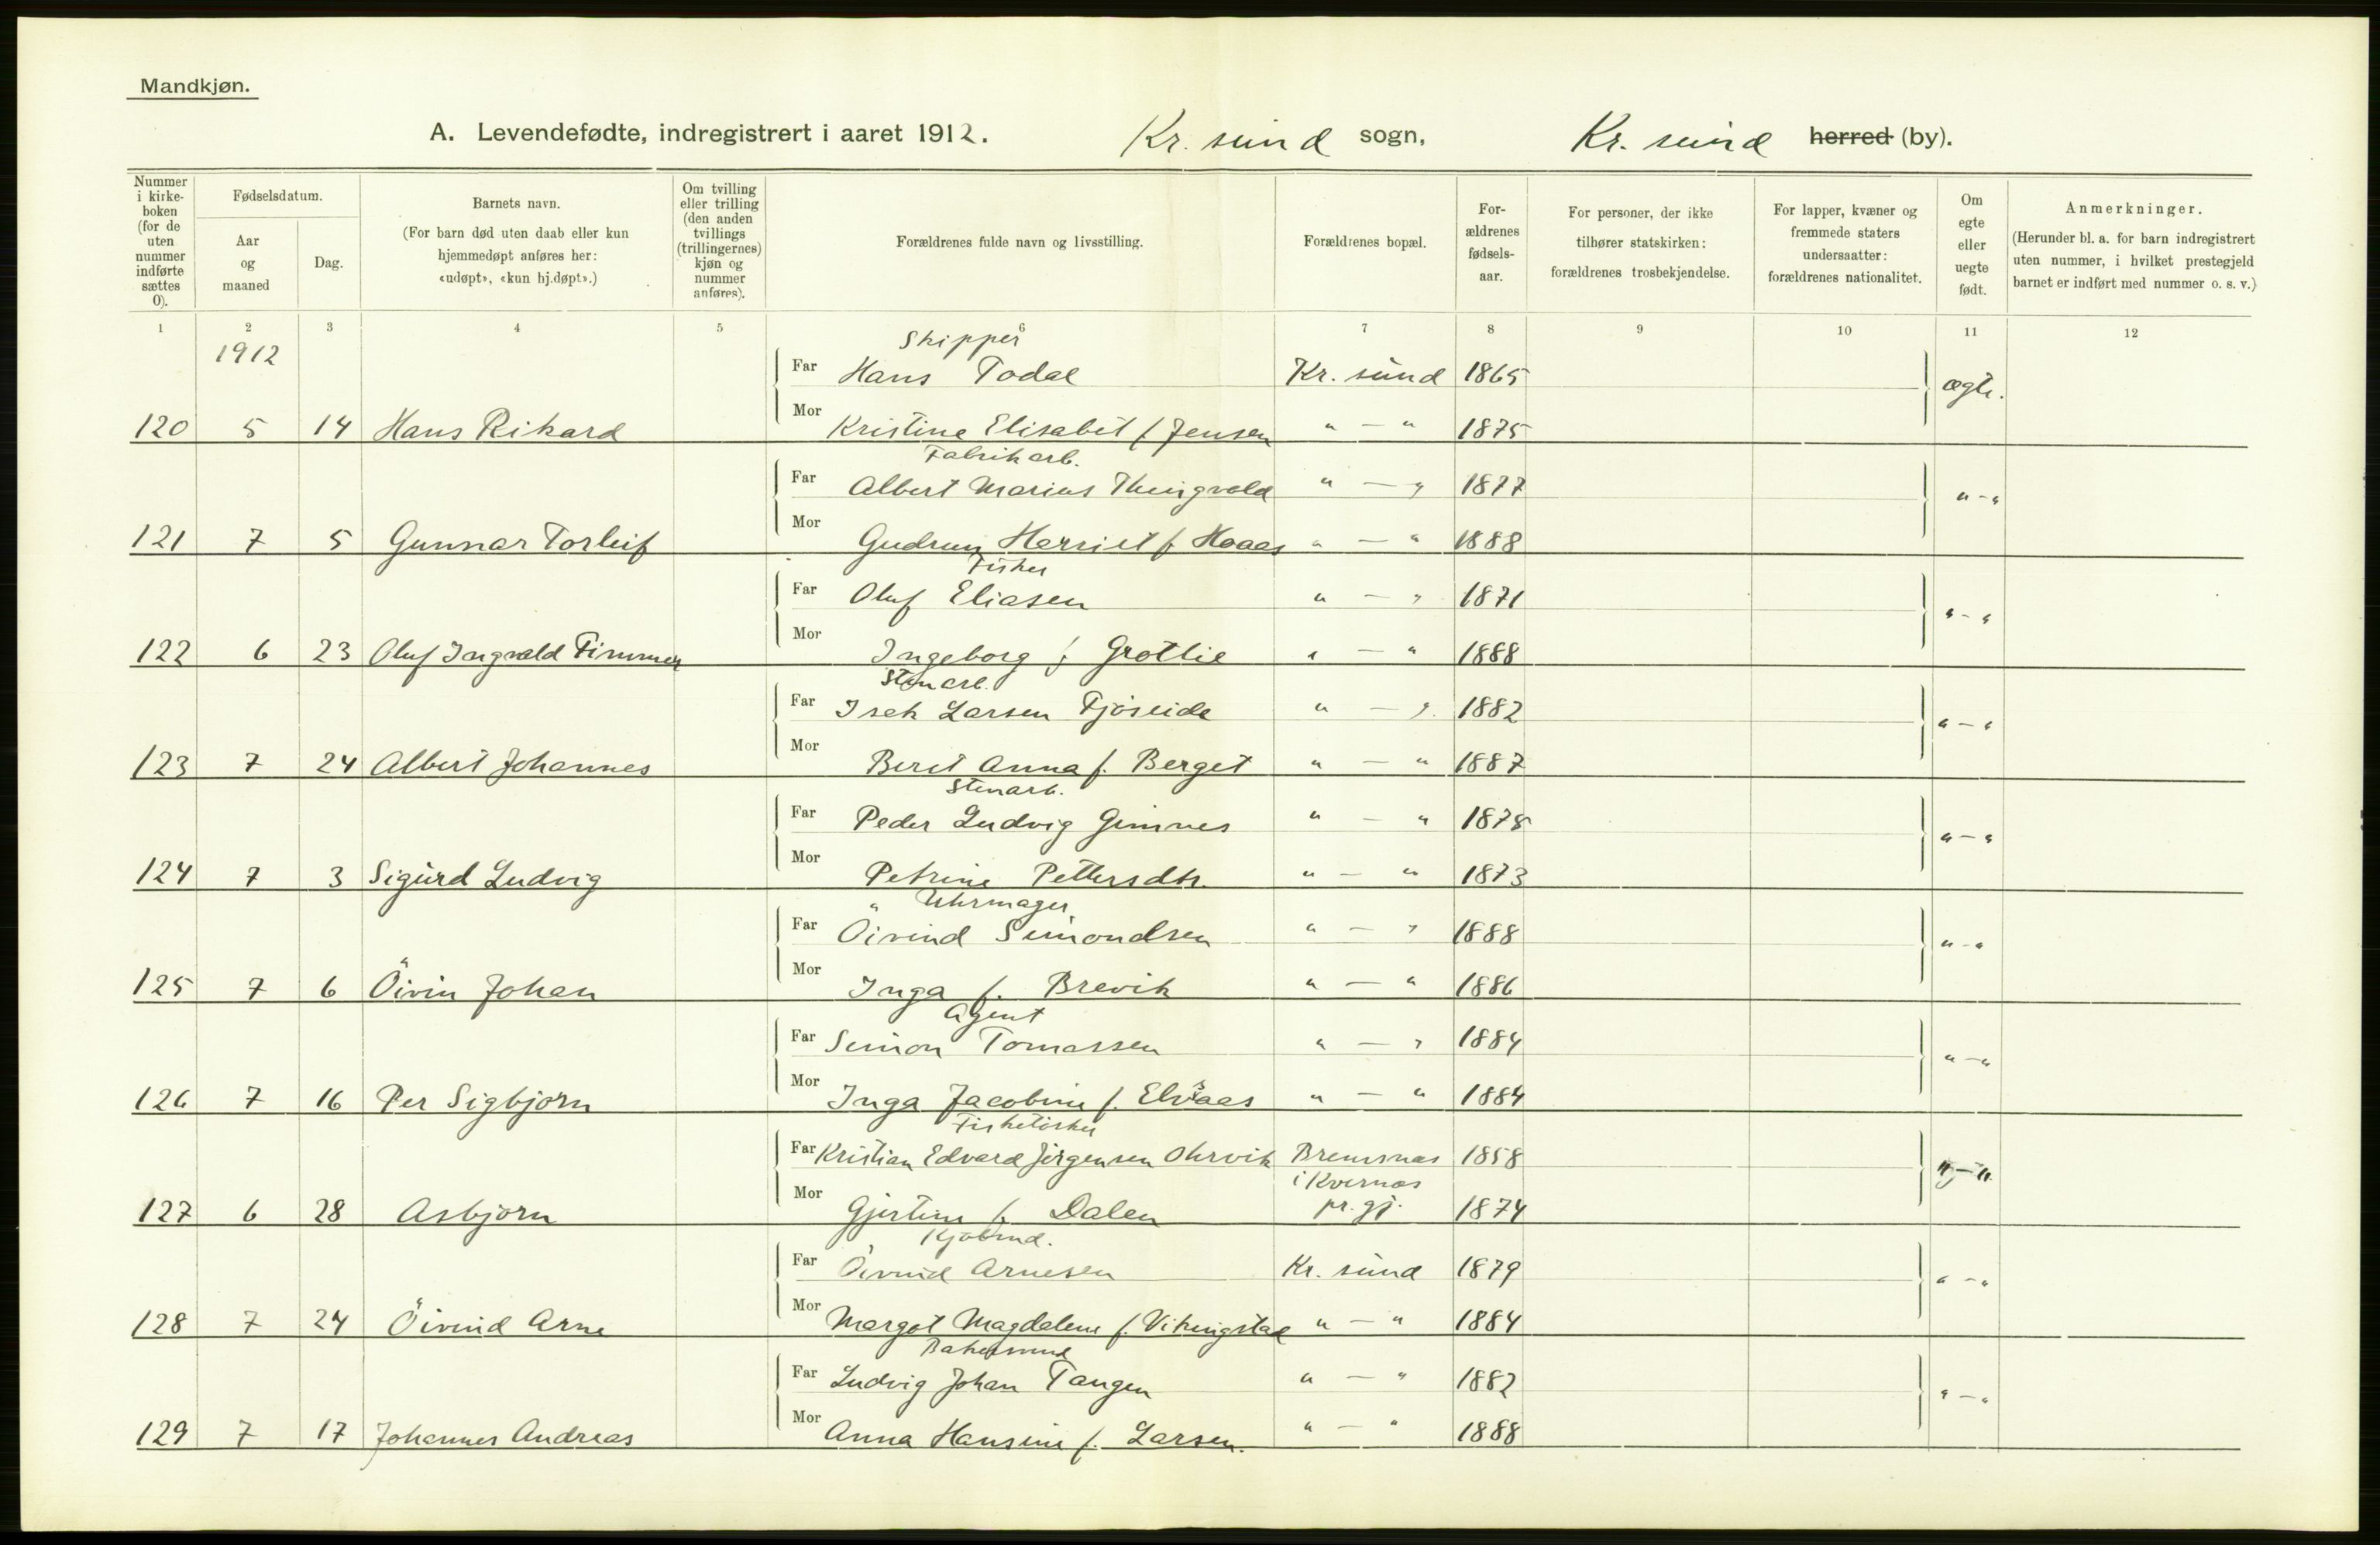 Mandkjøn.
A. Levendefødte, indregistrert i aaret 1912. Kr. sund sogn, Kr. sund herred (by).
Nummer i kirkeboken (for de uten nummer indførte sættes 0).
Fødselsdatum.
Aar og maaned
Dag.
Barnets navn.
(For barn død uten daab eller kun hjemmedøpt anføres her: «udøpt», «kun hj.døpt».)
Om tvilling eller trilling (den anden tvillings (trillingernes) kjøn og nummer anføres).
Forældrenes fulde navn og livsstilling.
Forældrenes bopæl.
Forældrenes fødselsaar.
For personer, der ikke tilhører statskirken: forældrenes trosbekjendelse.
For lapper, kvæner og fremmede staters undersaatter: forældrenes nationalitet.
Om egte eller uegte født.
Anmerkninger.
(Herunder bl. a. for barn indregistrert uten nummer, i hvilket prestegjeld barnet er indført med nummer o. s. v.)
1 2 3 4 5 6 7 8 9 10 11 12
1912
Skipper
Far Hans Todal Kr. sund 1865 ægte.
120 5 14 Hans Rikard Mor Kristine Elisabet f Jensen " — " 1875
Fabrikarb.
Far Albert Marius Thingvold " — " 1877 " - "
121 7 5 Gunnar Torleif Mor Gudrun Harriet f Haaes " — " 1888
Fisker
Far Oluf Eliasen " — " 1871 " - "
122 6 23 Oluf Ingvald Fimmer Mor Ingeborg f Grotlie " — " 1888
Stenarb.
Far Isak Larsen Fjöseide " — " 1882 " — "
123 7 24 Albert Johannes Mor Berit Anna f. Berget " — " 1887
Stenarb.
Far Peder Ludvig Gimnes " — " 1878 " — "
124 7 3 Sigurd Ludvig Mor Petrine Pettersdtr. " — " 1873
Uhrmager
Far Öivind Simondsen " — " 1888 " - "
125 7 6 Öivin Johan Mor Inga f. Brevik " — " 1886
Agent
Far Simon Tomassen " — " 1884 " — "
126 7 16 Per Sigbjörn Mor Inga Jacobine f. Elvsaas " — " 1884
Fisketörker
Far Kristian Edvard Jörgensen Ohrvik Bremsnæs 1858 " — "
i Kvernæs
127 6 28 Asbjörn Mor Gjertine f. Dalen pr.gj. 1874
Kjöbmd.
Far Öivind Arnesen Kr. sund 1879 " — "
128 7 24 Öivind Arne Mor Margot Magdalene f. Vikingstad " — " 1884
Bakersvend
Far Ludvig Johan Tangen " — " 1882 " — "
129 7 17 Johannes Andreas Mor Anna Hansine f. Larsen. " — " 1888